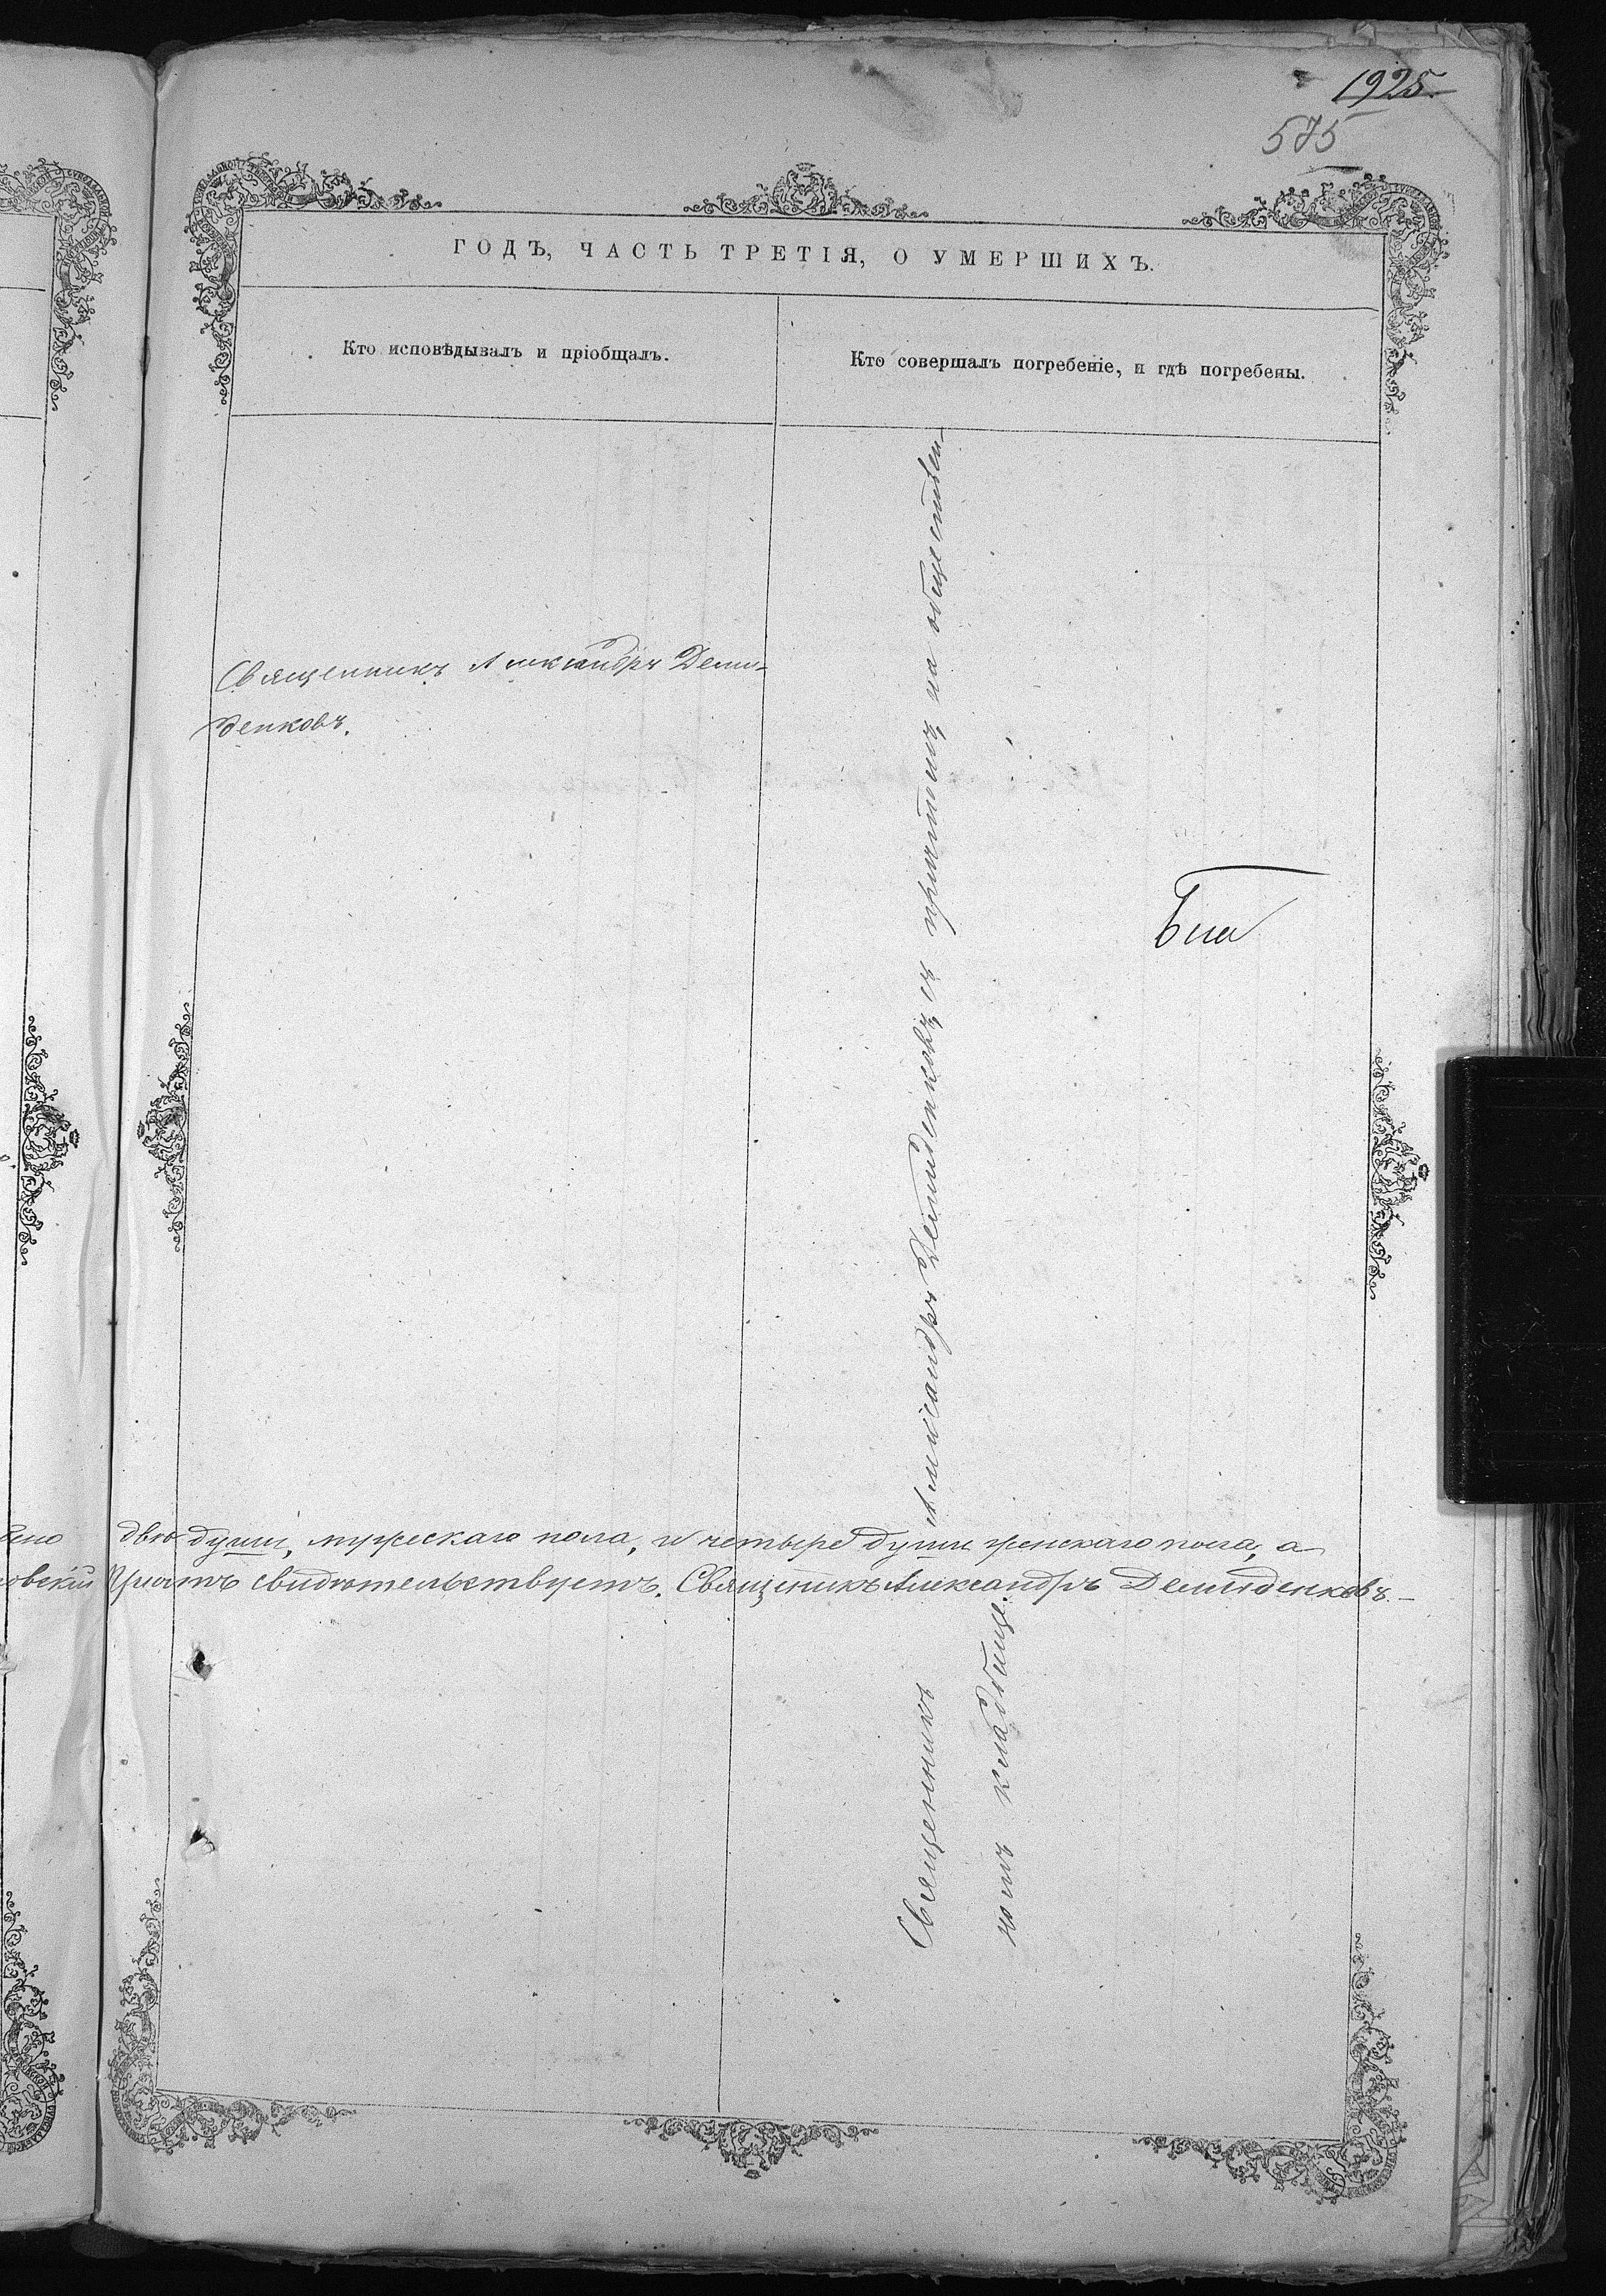 1925.
575
ГОДЪ, ЧАСТЬ ТРЕТІЯ, О УМЕРШИХЪ.
Кто исповѣдывалъ и пріобщалъ.
Кто совершалъ погребеніе, и гдѣ погребены.
Священникъ Александръ Деми-
денковъ.
Священникъ Александръ Демиденковъ съ причтомъ на обществен-
номъ кладбище.
двѣ души, мужескаго пола, и четыре души женскаго пола, а
овскій Причтъ свидѣтельствуетъ. Священикъ Александръ Демиденковъ.